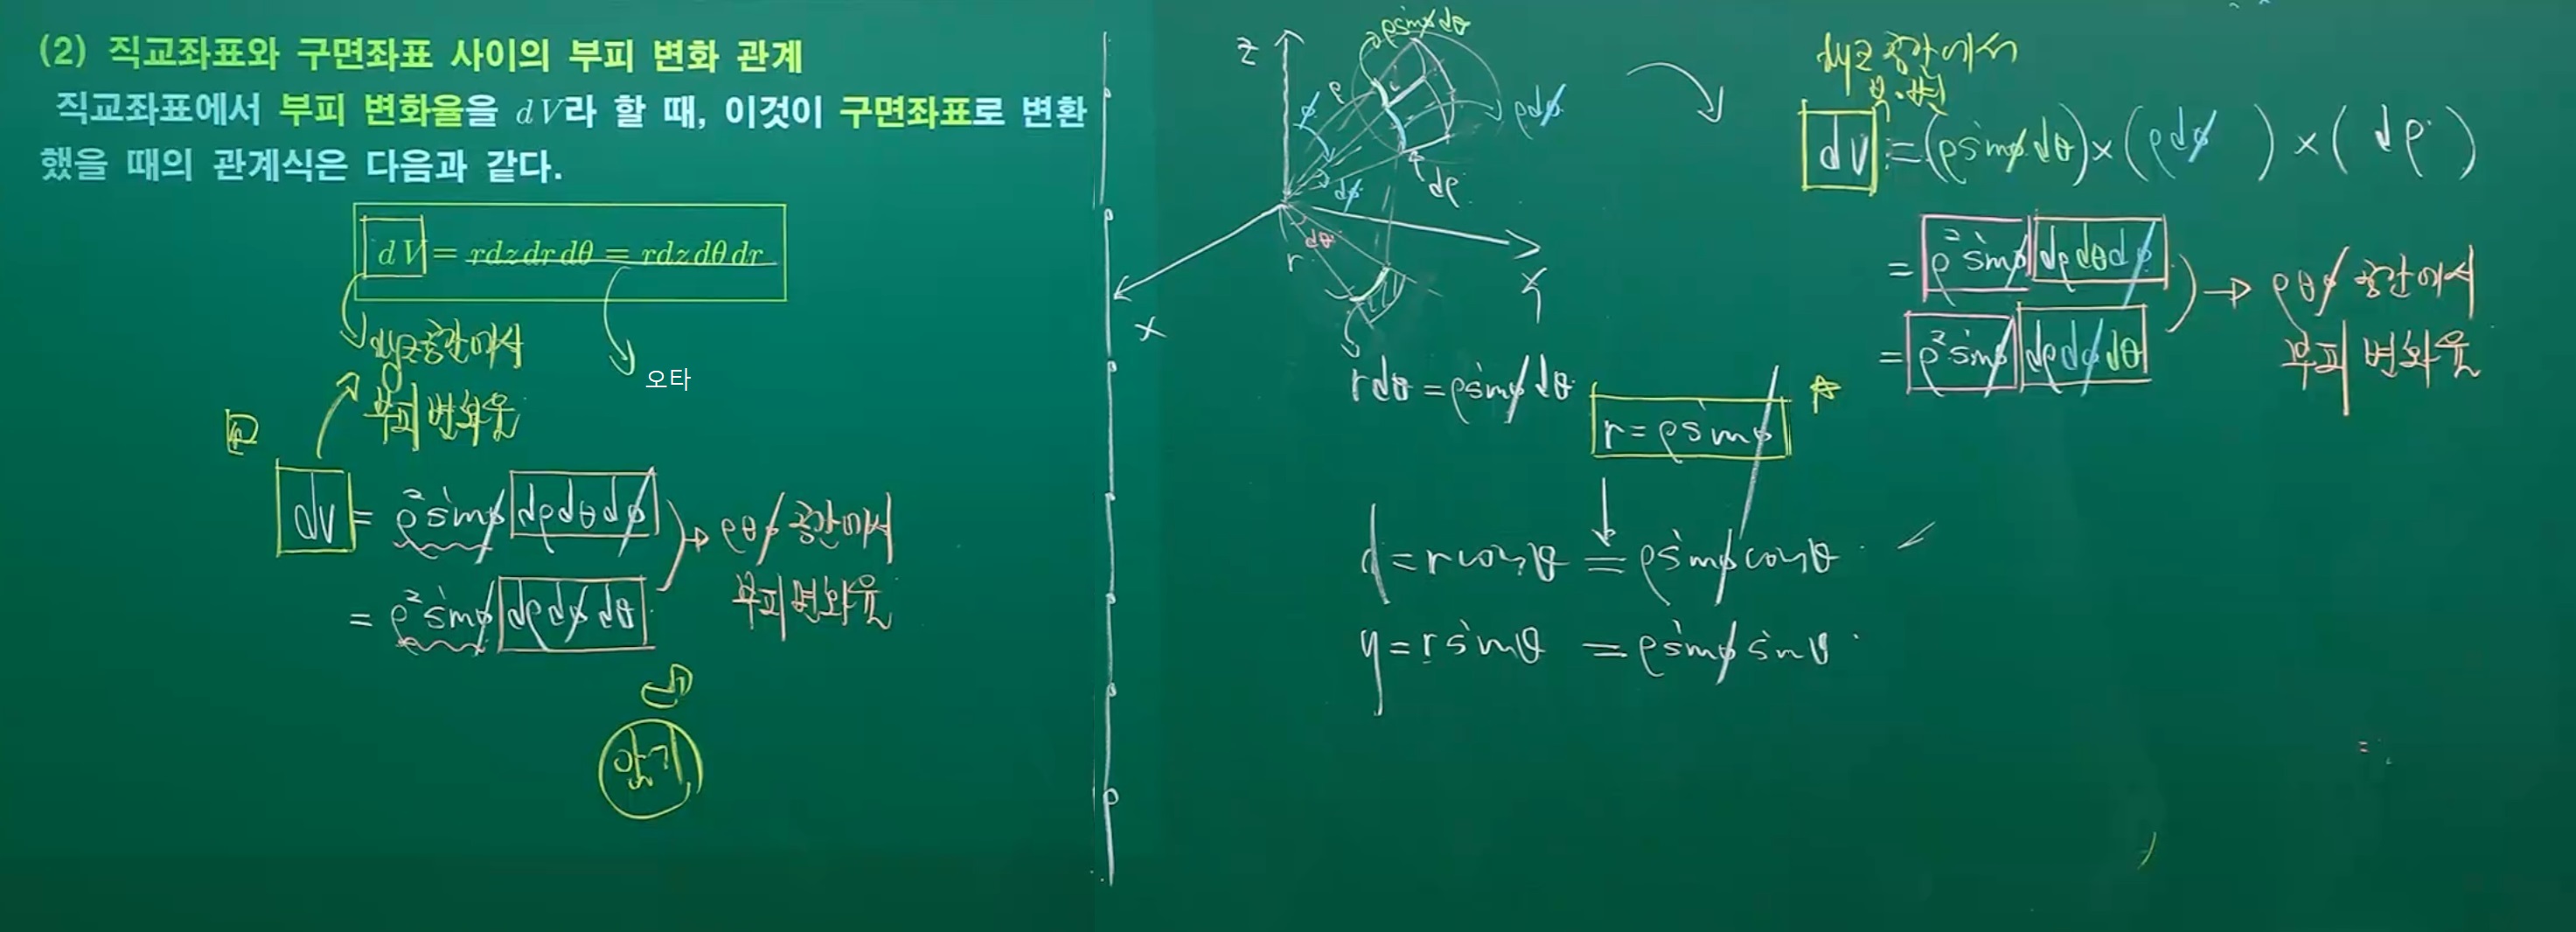 (2) 직교좌표와 구면좌표 사이의 부피 변화 관계
직교좌표에서 부피 변화율을 dV라 할 때, 이것이 구면좌표로 변환
했을 때의 관계식은 다음과 같다.
dV = rdzdrdθ = rdzdθdr
xyz공간에서
부피 변화율
오타
dV = ρ²sinφ dρdθdφ
= ρ²sinφ dρdφdθ
→ ρθφ 공간에서
부피변화율
암기
z
ρsinφdθ
ρ
φ
ρdφ
dφ
dρ
dθ
r
y
x
rdθ = ρsinφdθ
r = ρsinφ
x = rcosθ = ρsinφcosθ
y = rsinθ = ρsinφsinθ
xyz공간에서
dV = (ρsinφdθ) × (ρdφ) × (dρ)
= ρ²sinφ dρdθdφ
= ρ²sinφ dρdφdθ
→ ρθφ 공간에서
부피 변화율